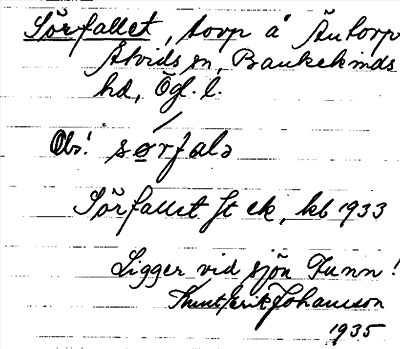 Sörfallet, torp å Äntorp
Åtvids sn, Bankekinds
hd, Ög. l.
Obs! sørfalə
Sörfallet Jt ek, kb 1933
Ligger vid sjön Funn!
Knut Erik Johansson
1935